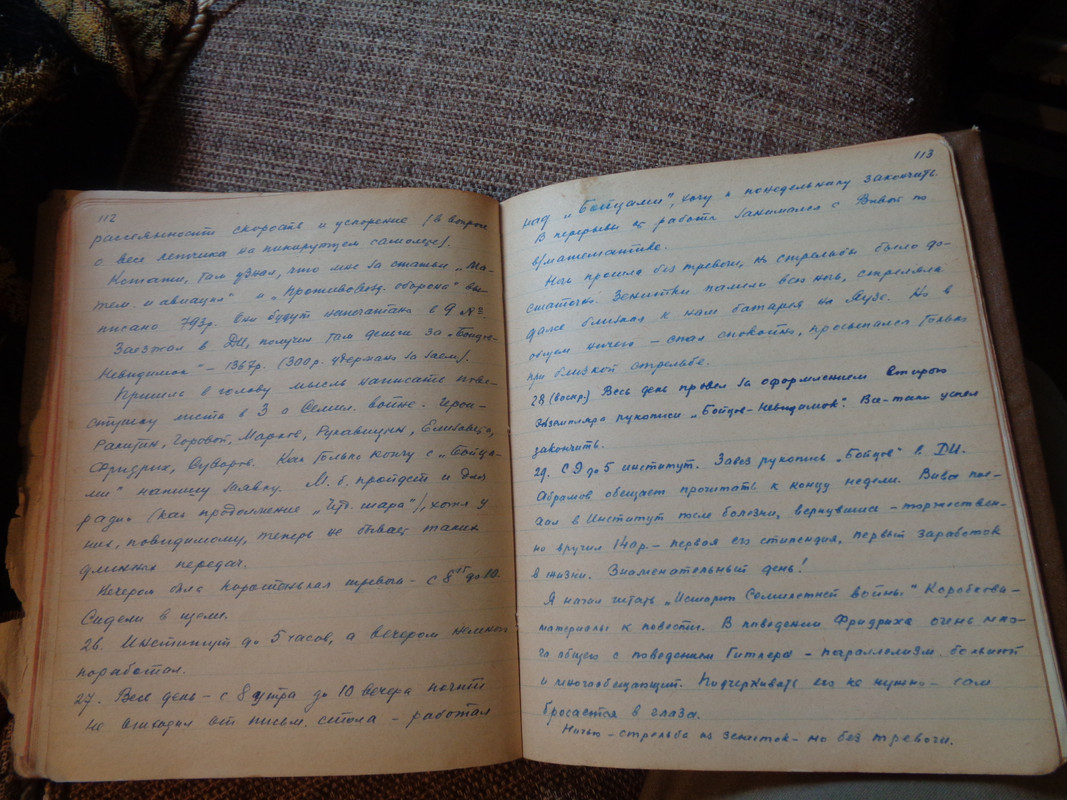 112
рассеянности скорость и ускорение (в вопросе
о весе летчика на пикирующем самолете).
Кстати, там узнал, что мне за статьи „Ма-
тем. и авиация" и „Противовозд. оборона" вы-
писано 793р. Они будут напечатаны в 9 №
Заезжал в ДИ, получил там деньги за „Бойцов-
Невидимок" – 1367р. (300р. удержано за заем).
Пришла в голову мысль написать пове-
стушку листа в 3 о Семил. войне. Герои –
Ракитин, Горовой, Марков, Рукавицын, Елизавета,
Фридрих, Суворов. Как только кончу с „Бойца-
ми" напишу заявку. М.б. пройдет и для
радио (как продолжение „Чуд. шара"), хотя у
них, повидимому, теперь не бывает таких
длинных передач.
Вечером была коротенькая тревога – с 8 до 10.
Сидели в щели.
26. Институт до 5 часов, а вечером немного
поработал.
27. Весь день – с 8 утра до 10 вечера почти
не выходил от письм. стола – работал
113
над „Бойцами", хочу к понедельнику закончить.
В перерывы работы занимался с Вивой по
в/математике.
Ночь прошла без тревоги, но стрельбы было до-
статочно. Зенитки палили всю ночь, стреляла
даже близкая к нам батарея на Яузе. Но в
общем ничего – спал спокойно, просыпался только
при близкой стрельбе.
28 (воскр.) Весь день провел за оформлением второго
экземпляра рукописи „Бойцов-Невидимок". Все-таки успел
закончить.
29. С 9 до 5 институт. Завез рукопись „Бойцов" в ДИ.
Абрамов обещает прочитать к концу недели. Вива пое-
хал в Институт после болезни, вернувшись – торжествен-
но вручил 140р. – первая его стипендия, первый заработок
в жизни. Знаменательный день!
Я начал читать „Историю Семилетней войны" Коробкова –
материалы к повести. В поведении Фридриха очень мно-
го общего с поведением Гитлера – параллелизм большой
и многообещающий. Подчеркивать его не нужно – сам
бросается в глаза.
Ночью – стрельба из зениток – но без тревоги.